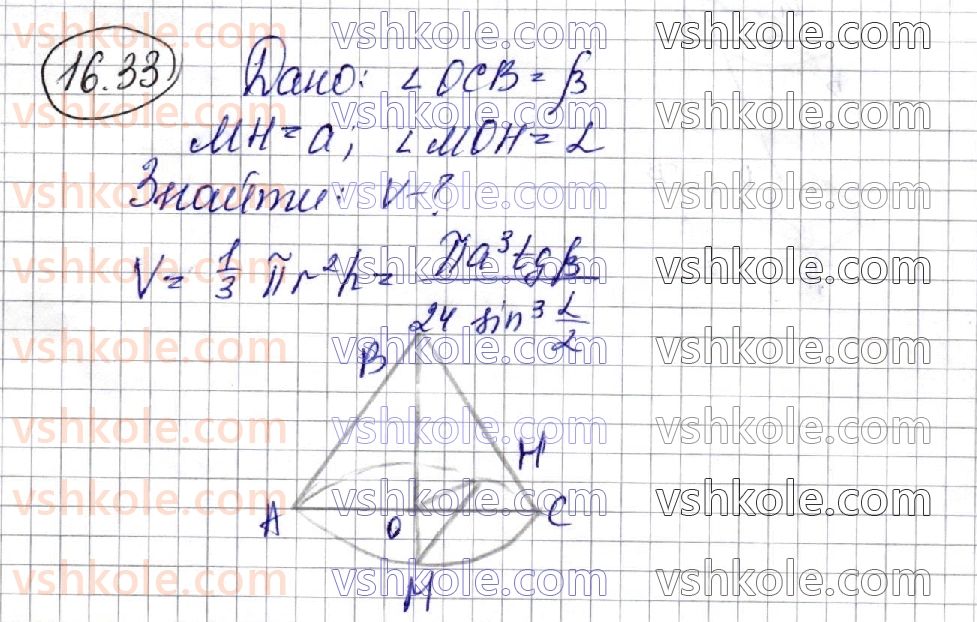 16.33 Дано: ∠OCB = β
MH = a; ∠MOH = α
Знайти: V - ?
V = 1/3 πr²h = πa³tgβ / 24 sin³ α/2
B
H
A O C
M
vshkole.com vshkole.com vshkole.com
vshkole.com vshkole.com vshkole.com
vshkole.com vshkole.com vshkole.com
vshkole.com vshkole.com vshkole.com
vshkole.com vshkole.com vshkole.com
vshkole.com vshkole.com vshkole.com
vshkole.com vshkole.com vshkole.com
vshkole.com vshkole.com vshkole.com